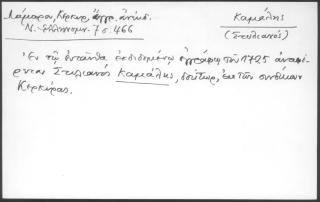 Λάμπρου, Κερκυρ. ἔγγρ. ἀνέκδ.
Ν. Ἑλληνομν. 7 σ. 466
Καμάλης
(Στυλιανός)
Ἐν τῷ ἐνταῦθα ἐκδιδομένῳ ἐγγράφῳ τοῦ 1725 ἀναφέ-
ρεται Στυλιανὸς Καμάλης, δόττωρ, ἐκ τῶν συνδίκων
Κερκύρας.